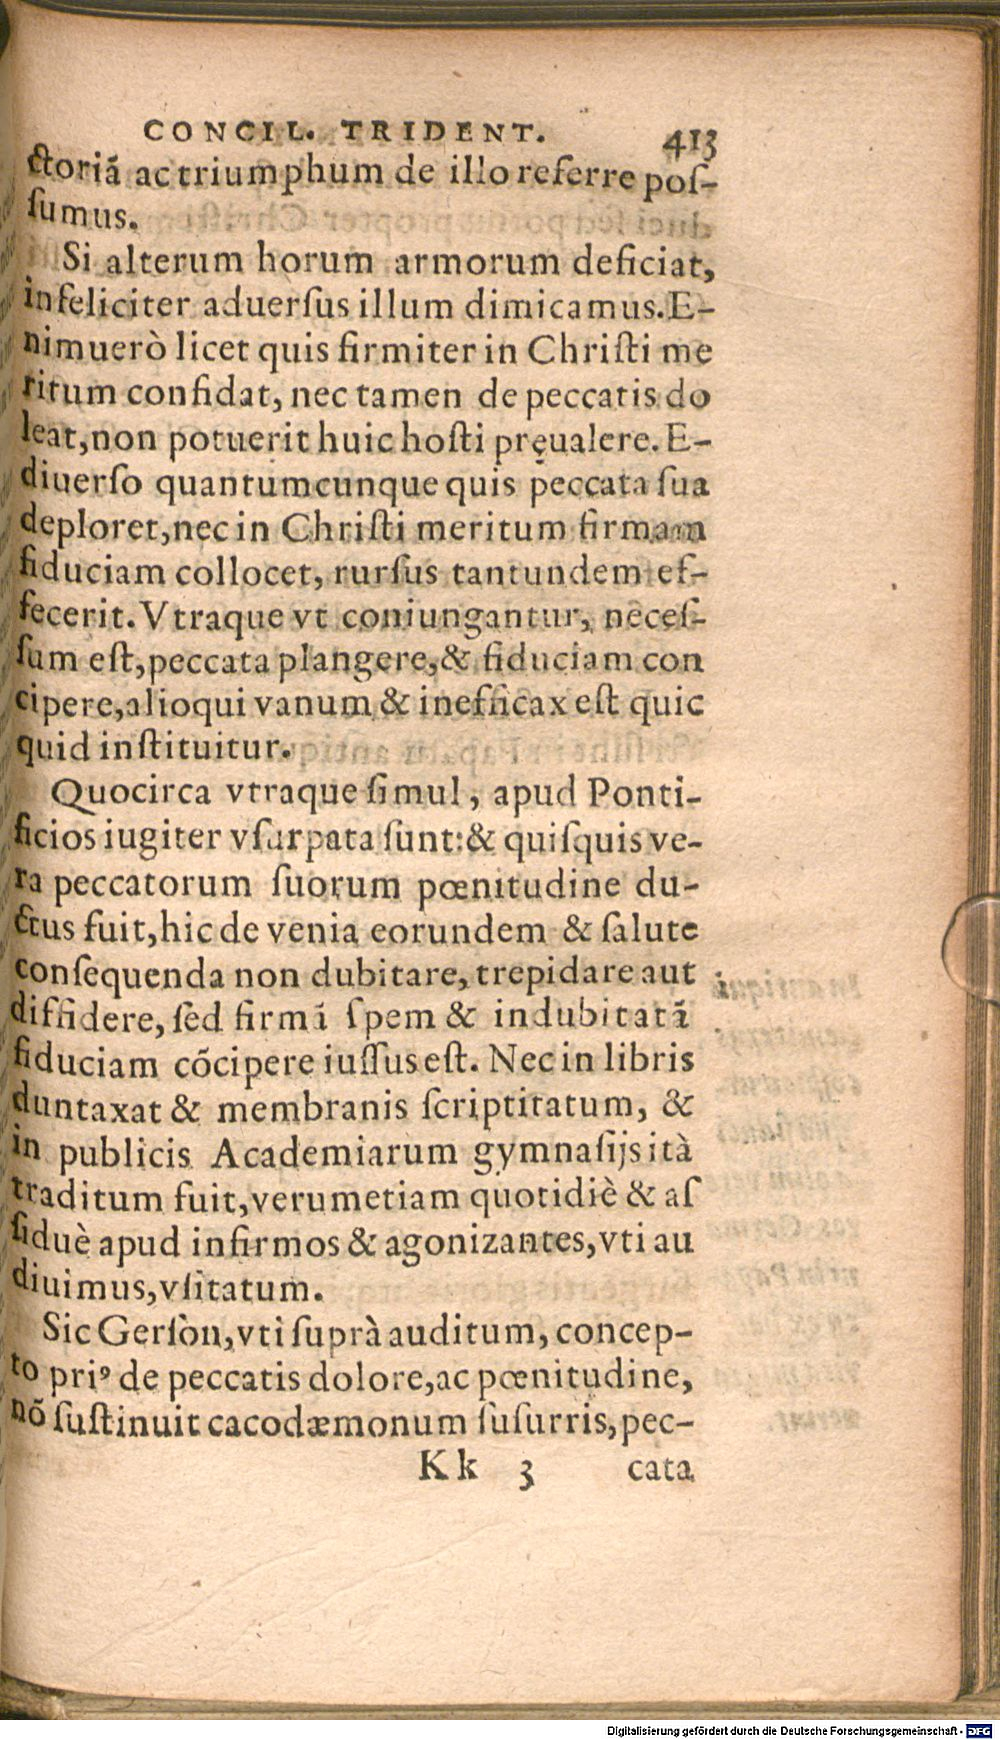 CONCIL. TRIDENT. 413
ctoriā ac triumphum de illo referre poſ-
ſumus.
Si alterum horum armorum deficiat,
infeliciter aduerſus illum dimicamus. E-
nimuerò licet quis firmiter in Chriſti me
ritum confidat, nec tamen de peccatis do
leat, non potuerit huic hoſti pręualere. E-
diuerſo quantumcunque quis peccata ſua
deploret, nec in Chriſti meritum firmam
fiduciam collocet, rurſus tantundem ef-
fecerit. Vtraque vt coniungantur, neceſ-
ſum eſt, peccata plangere, & fiduciam con
cipere, alioqui vanum & inefficax eſt quic
quid inſtituitur.
Quocirca vtraque ſimul, apud Ponti-
ficios iugiter vſurpata ſunt: & quiſquis ve-
ra peccatorum ſuorum pœnitudine du-
ctus fuit, hic de venia eorundem & ſalute
conſequenda non dubitare, trepidare aut
diffidere, ſed firmā ſpem & indubitatā
fiduciam cōcipere iuſſus eſt. Nec in libris
duntaxat & membranis ſcriptitatum, &
in publicis Academiarum gymnaſijs ità
traditum fuit, verumetiam quotidiè & aſ
ſiduè apud infirmos & agonizantes, vti au
diuimus, vſitatum.
Sic Gerſon, vti ſuprà auditum, concep-
to priꝰ de peccatis dolore, ac pœnitudine,
nō ſuſtinuit cacodæmonum ſuſurris, pec-
Kk 3 cata
Digitalisierung gefördert durch die Deutsche Forschungsgemeinschaft - DFG